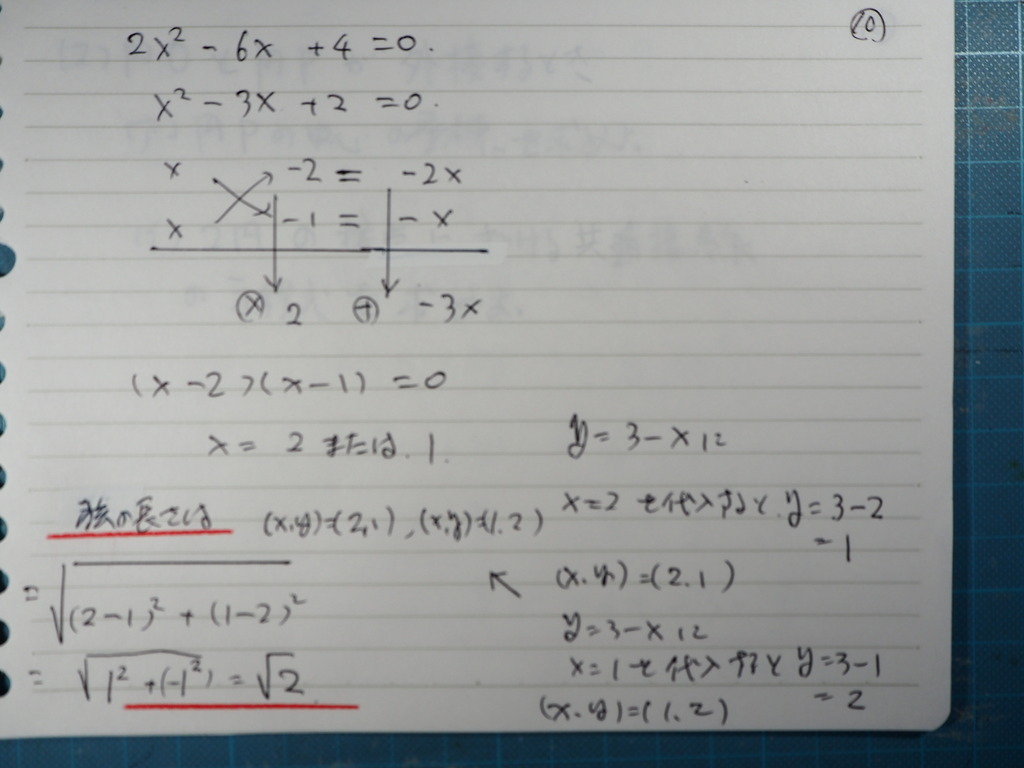 ⑩
2x² - 6x + 4 = 0.
x² - 3x + 2 = 0.
x -2 = -2x
x -1 = -x
ⓧ 2 ⊕ -3x
(x-2)(x-1) = 0
x = 2 または. 1.
弦の長さは (x.y)=(2,1), (x,y)=(1.2)
= √(2-1)² + (1-2)²
= √1²+(-1²) = √2
y = 3-x に
x=2 を代入すると. y=3-2
= 1
(x.y)=(2.1)
y=3-x に
x=1を代入すると y=3-1
= 2
(x.y)=(1.2)